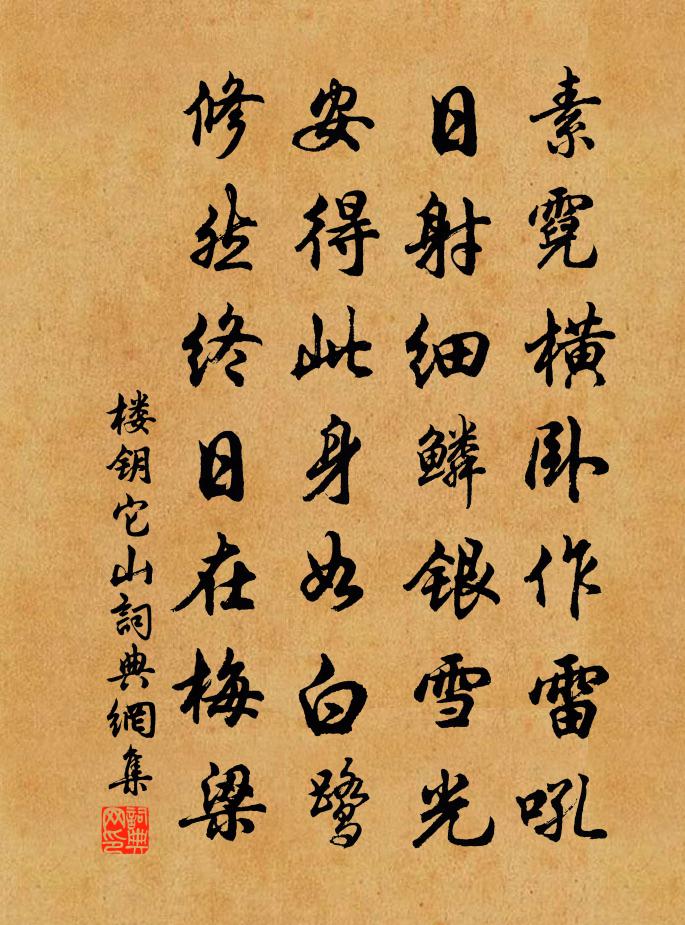 素霓横卧作雷吼
日射细鳞银雪光
安得此身如白鹭
修然终日在梅梁
楼钥它山詞典網集
詞典网印